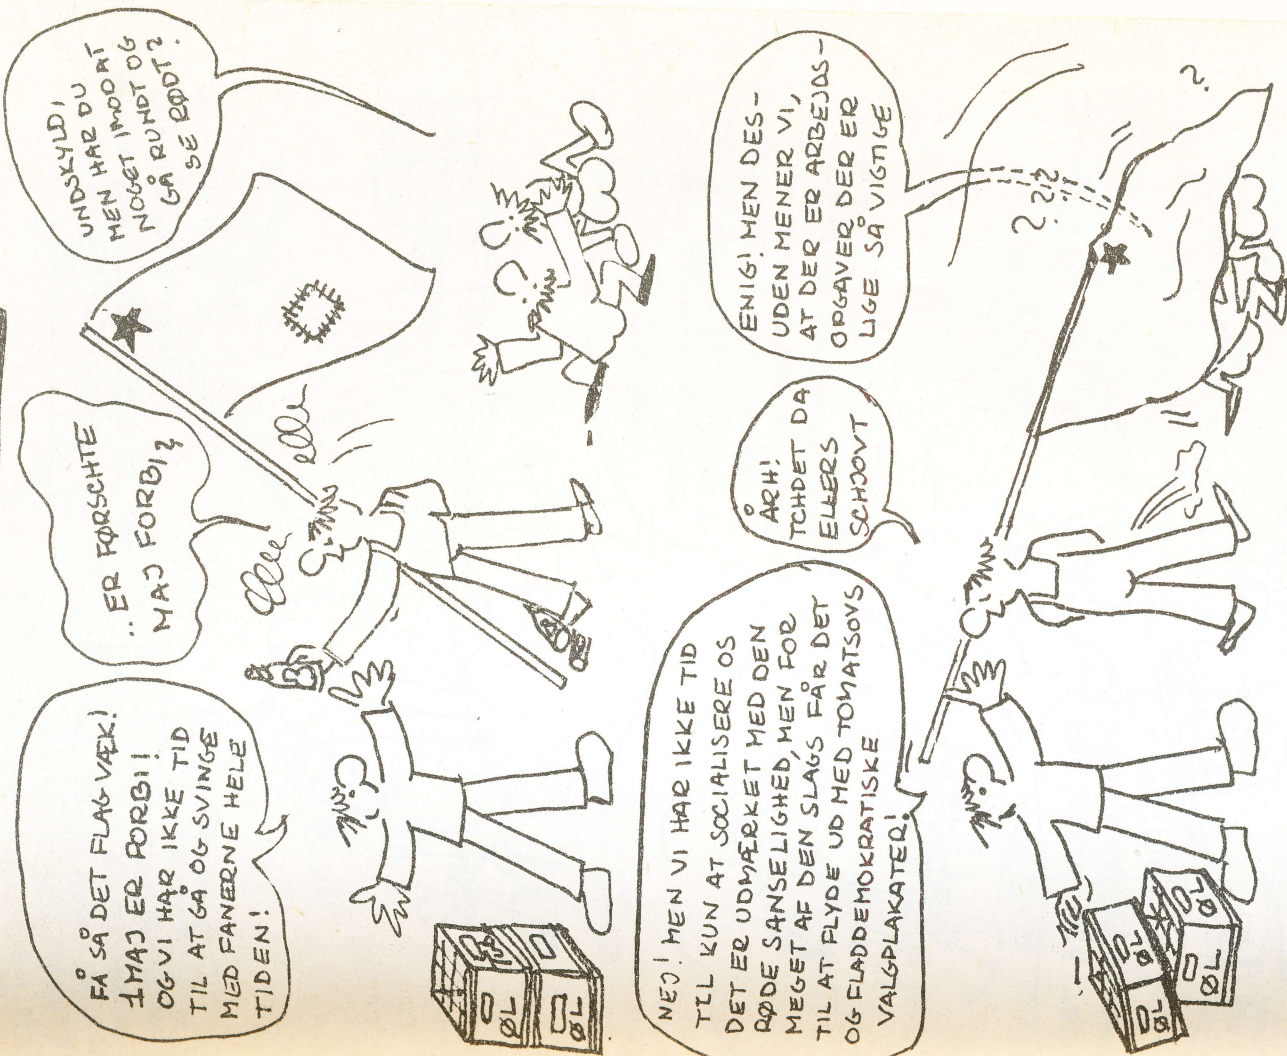 FÅ SÅ DET FLAG VÆK!
1 MAJ ER FORBI!
OG VI HAR IKKE TID
TIL AT GÅ OG SVINGE
MED FANERNE HELE
TIDEN!
.. ER FØRSCHTE
MAJ FORBI?
UNDSKYLD,
MEN HAR DU
NOGET IMOD AT
GÅ RUNDT OG
SE RØDT?
ØL
ØL
NEJ! MEN VI HAR IKKE TID
TIL KUN AT SOCIALISERE OS
DET ER UDMÆRKET MED DEN
RØDE SANSELIGHED, MEN FOR
MEGET AF DEN SLAGS FÅR DET
TIL AT FLYDE UD MED TOMATSOVS
OG FLADDEMOKRATISKE
VALGPLAKATER!
ÅRH!
TCHDET DA
ELLERS
SCHJOVT
ENIG! MEN DES-
UDEN MENER VI,
AT DER ER ARBEJDS-
OPGAVER DER ER
LIGE SÅ VIGTIGE
???
?
ØL
ØL
ØL
ØL